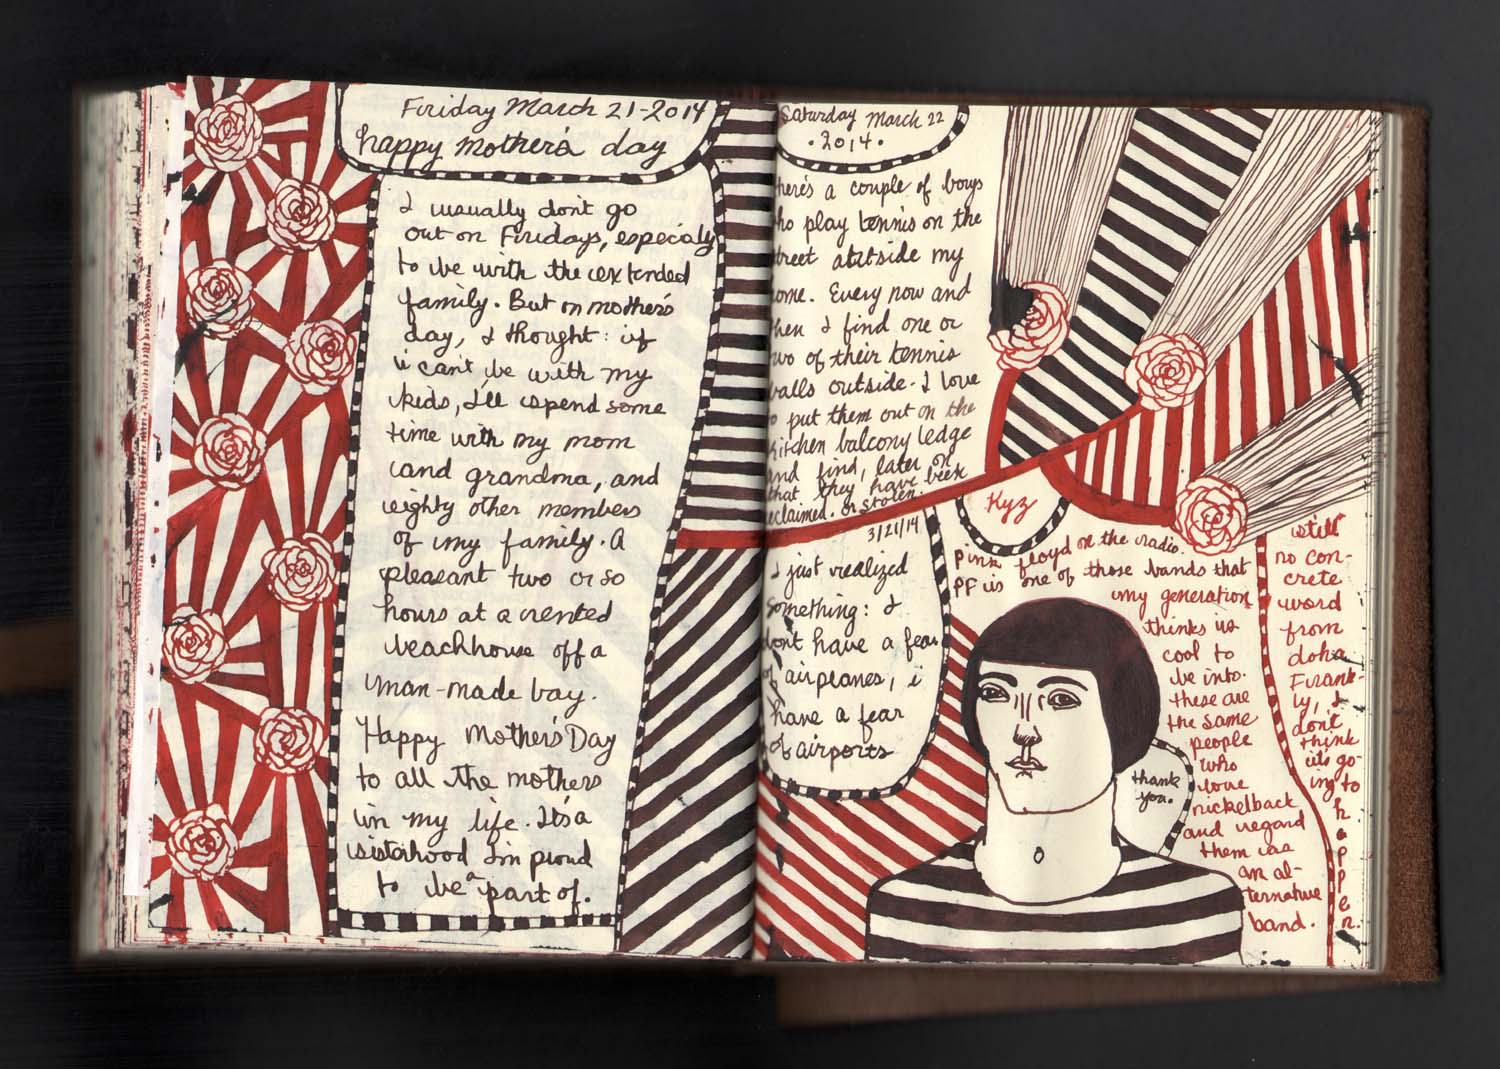 Friday March 21-2014
happy mother's day
I usually don't go
out on Fridays, especialy
to be with the extended
family. But on mother's
day, I thought: if
i can't be with my
kids, I'll spend some
time with my mom
and grandma, and
eighty other members
of my family. A
pleasant two or so
hours at a rented
beachhouse off a
man-made bay.
Happy Mother's Day
to all the mothers
in my life. It's a
sisterhood I'm proud
to be a part of.
Saturday March 22
.2014.
here's a couple of boys
ho play tennis on the
treet outside my
ome. Every now and
hen I find one or
wo of their tennis
balls outside. I love
o put them out on the
kitchen balcony ledge
and find, later on
that they have been
eclaimed. or stolen.
3/21/14
I just realized
something: I
don't have a fear
of airplanes, i
have a fear
of airports
Kyz
Pink floyd on the radio.
PF is one of those bands that
my generation
thinks is
cool to
be into.
these are
the same
people
who
love
nickelback
and regard
them as
an al-
ternative
band.
thank
you.
still
no con-
crete
word
from
doha.
Frank-
ly, I
don't
think
it's go-
ing to
h
a
p
p
e
n.